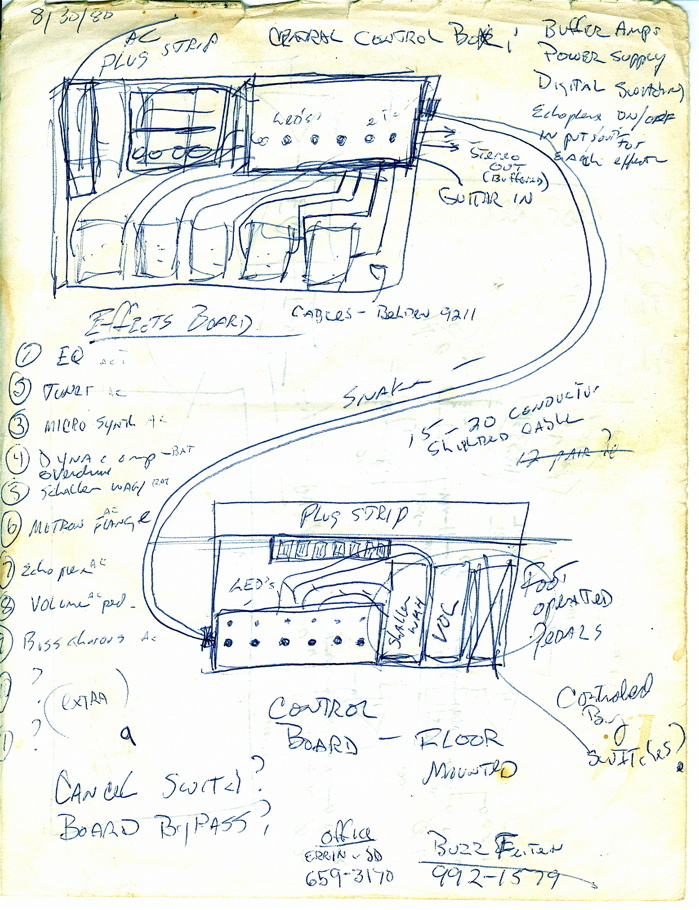 8/30/80
AC
PLUG STRIP
CENTRAL CONTROL BOX:
BUFFER AMPS
POWER SUPPLY
DIGITAL SWITCHING
Echoplex ON/OFF
IN PUT/OUT FOR
EACH effect
LED'S
STEREO
OUT
(Buffered)
GUITAR IN
EFFECTS BOARD
CABLES - Belden 9211
① EQ AC
② TUNER AC
③ MICRO SYNTH AC
④ DYNA COMP - BAT
overdrive
⑤ Schaller WAH/ BAT
⑥ MUTRON FLANGE AC
7 Echoplex AC
8 VOLUME ped. AC
9 Boss chorus AC
?
?
(EXTRA)
9
SNAKE
15-20 CONDUCTOR
SHIELDED CABLE
12 PAIR ?
PLUG STRIP
LED'S
Shaller
WAH
VOL
FOOT
OPERATED
PEDALS
CONTROL
BOARD - FLOOR
MOUNTED
Controled
By
SWITCHES?
CANCEL SWITCH?
BOARD BYPASS?
office
ERRIN - SD
659-3170
BUZZ FEITEN
992-1579